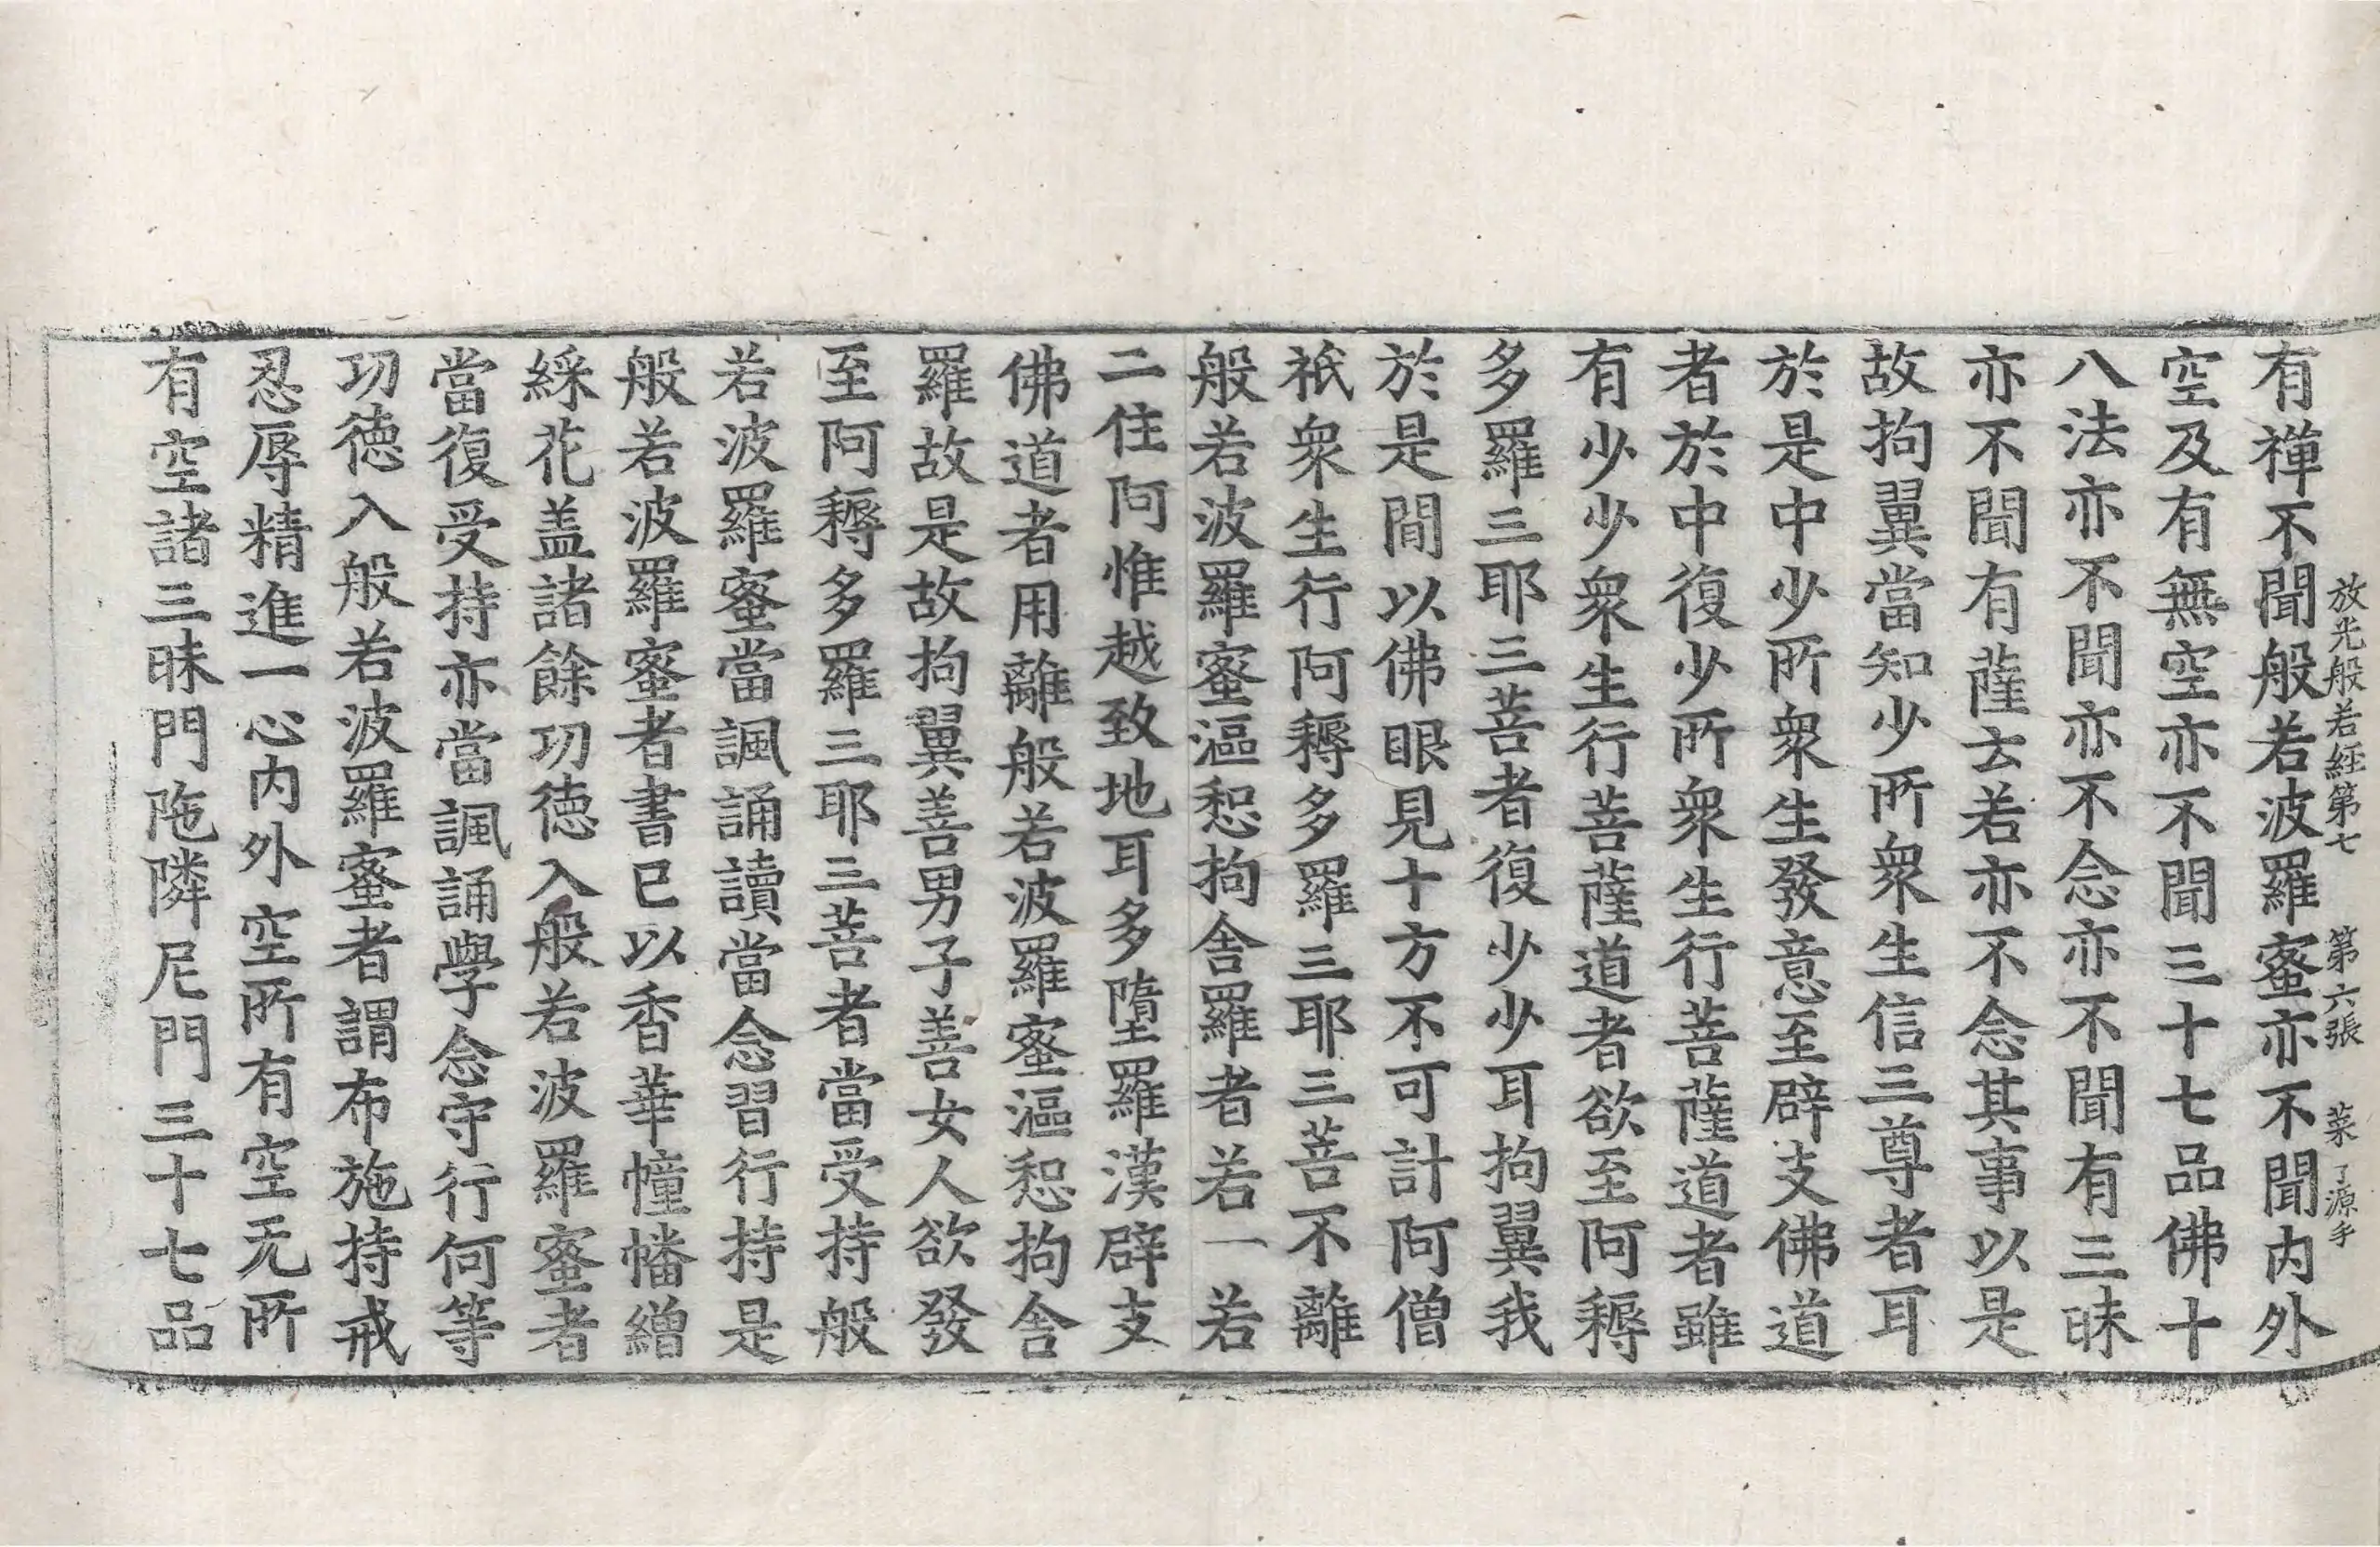 放光般若經第七 第六張 菜 了源手
有禪不聞般若波羅蜜亦不聞内外
空及有無空亦不聞三十七品佛十
八法亦不聞亦不念亦不聞有三昧
亦不聞有薩云若亦不念其事以是
故拘翼當知少所衆生信三尊者耳
於是中少所衆生發意至辟支佛道
者於中復少所衆生行菩薩道者雖
有少少衆生行菩薩道者欲至阿耨
多羅三耶三菩者復少少耳拘翼我
於是間以佛眼見十方不可計阿僧
祇衆生行阿耨多羅三耶三菩不離
般若波羅蜜漚惒拘舍羅者若一若
二住阿惟越致地耳多墮羅漢辟支
佛道者用離般若波羅蜜漚惒拘舍
羅故是故拘翼善男子善女人欲發
至阿耨多羅三耶三菩者當受持般
若波羅蜜當諷誦讀當念習行持是
般若波羅蜜者書已以香華幢幡繒
綵花盖諸餘功德入般若波羅蜜者
當復受持亦當諷誦學念守行何等
功德入般若波羅蜜者謂布施持戒
忍辱精進一心内外空所有空无所
有空諸三昧門陁隣尼門三十七品